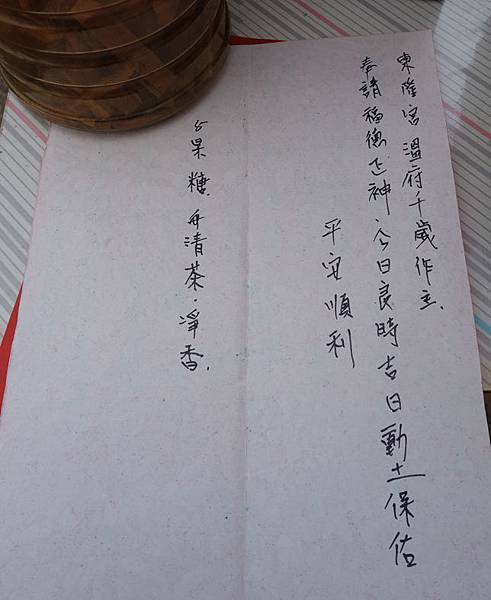 東隆宮溫府千歲作主.
奉請福德正神,今日良時吉日動土保佑
平安順利
5果糖.丹清茶.淨香.